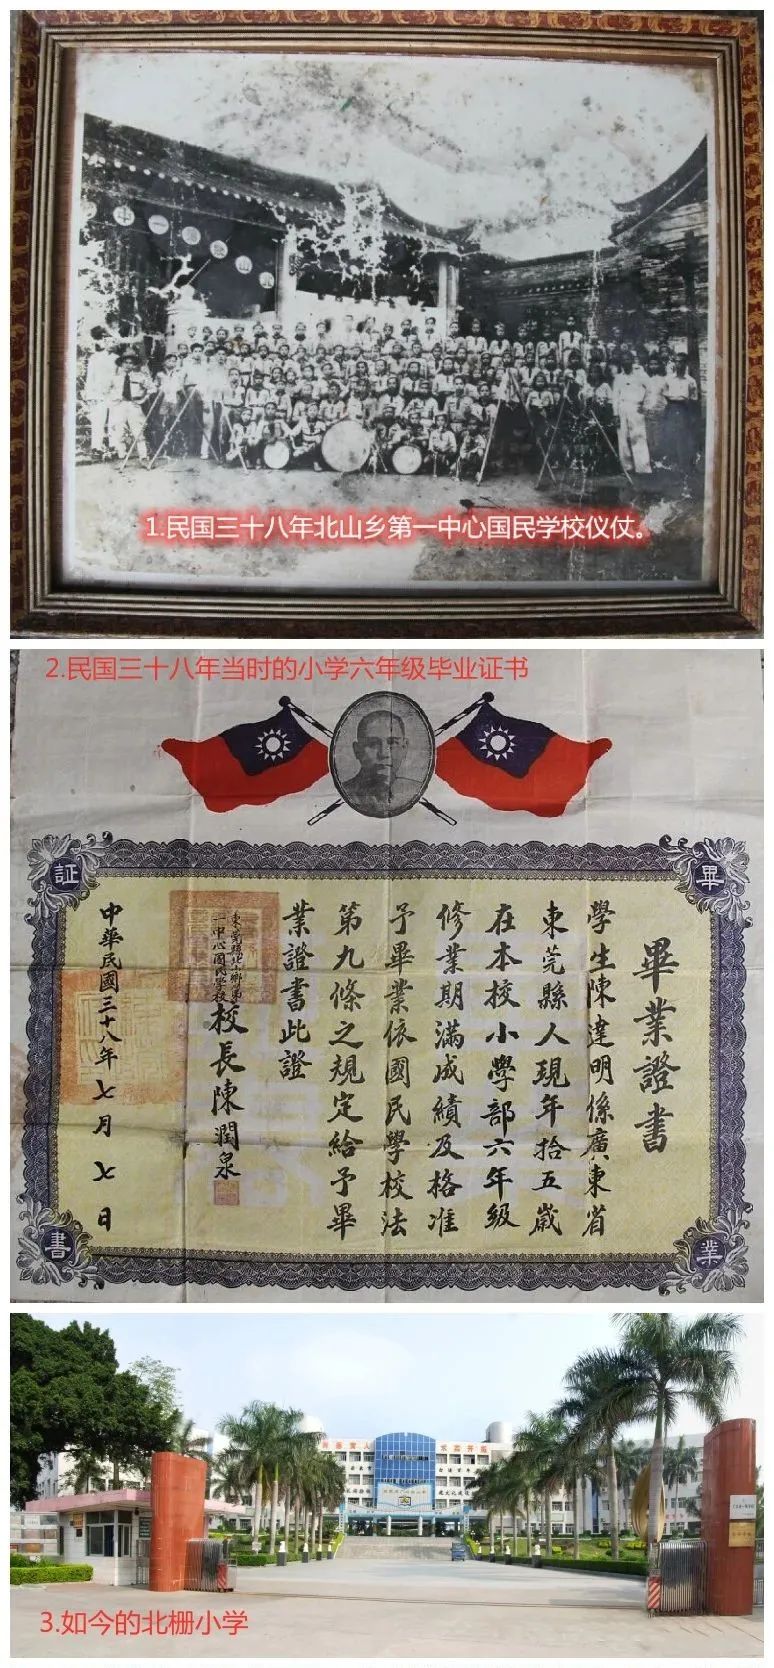 中一第鄉山北
1.民国三十八年北山乡第一中心国民学校仪仗。
2.民国三十八年当时的小学六年级毕业证书
畢
業
證
書
畢業證書
學生陳達明係廣東省
東莞縣人現年拾五歲
在本校小學部六年級
修業期滿成績及格准
予畢業依國民學校法
第九條之規定給予畢
業證書此證
校長陳潤泉
中華民國三十八年七月七日
3.如今的北栅小学